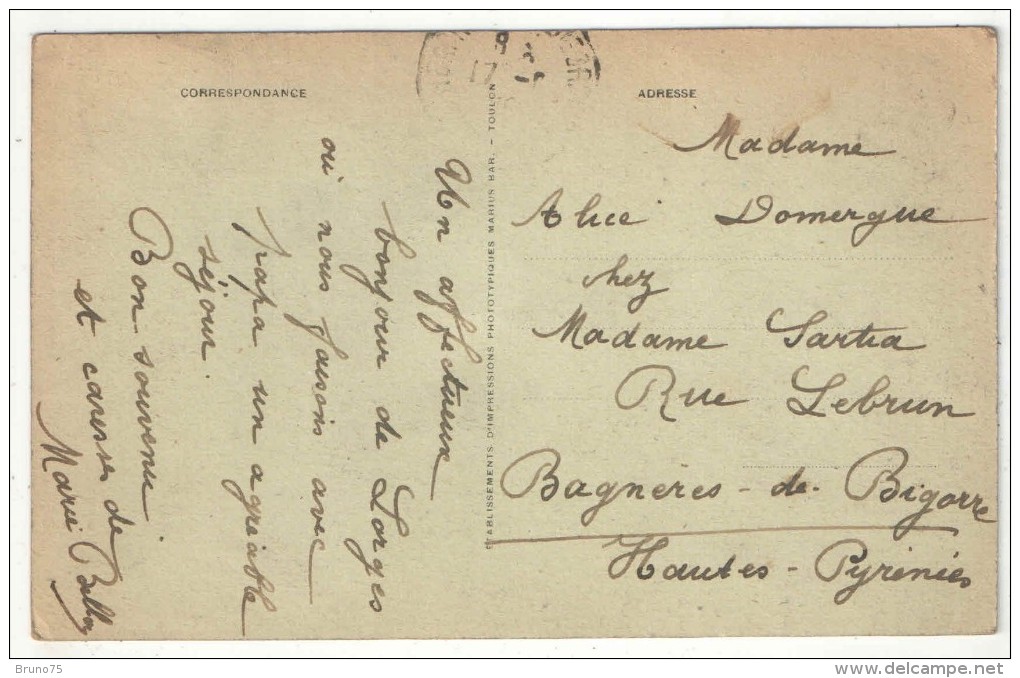 CORRESPONDANCE
Un affectueux
bonjour de Lorges
où nous faisons avec
papa un agréable
séjour.
Bon souvenir
et caresses de
Marie
ETABLISSEMENTS D'IMPRESSIONS PHOTOTYPIQUES MARIUS BAR. - TOULON
ADRESSE
Madame
Alice Domergue
chez
Madame Sartra
Rue Lebrun
Bagnères-de-Bigorre
Hautes-Pyrénées
Bruno75
www.delcampe.net